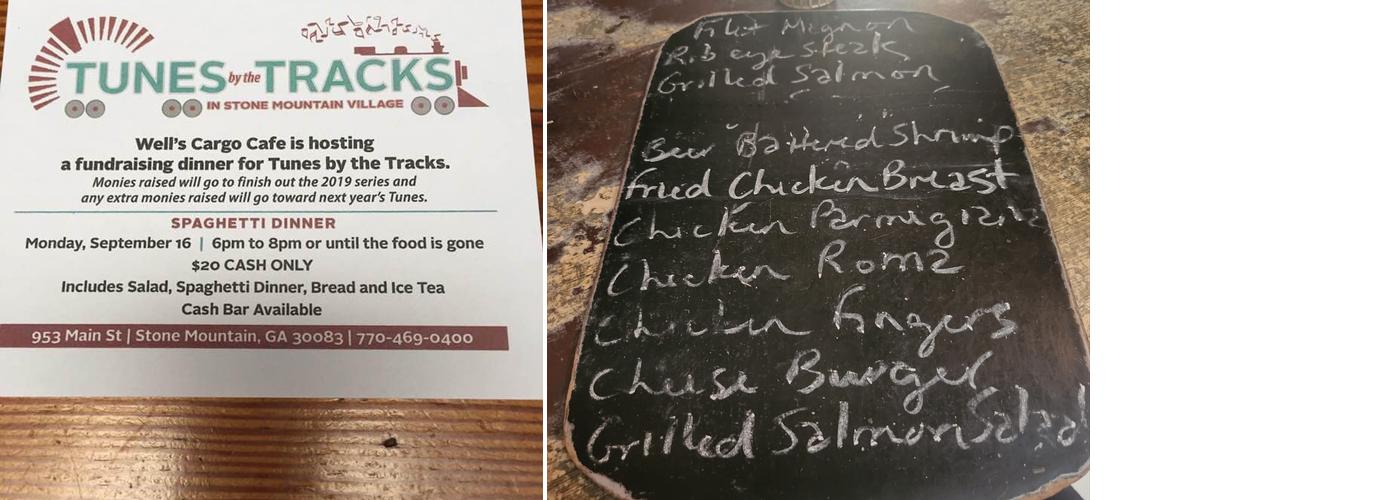 TUNES by the TRACKS
IN STONE MOUNTAIN VILLAGE
Well's Cargo Cafe is hosting
a fundraising dinner for Tunes by the Tracks.
Monies raised will go to finish out the 2019 series and
any extra monies raised will go toward next year's Tunes.
SPAGHETTI DINNER
Monday, September 16 | 6pm to 8pm or until the food is gone
$20 CASH ONLY
Includes Salad, Spaghetti Dinner, Bread and Ice Tea
Cash Bar Available
953 Main St | Stone Mountain, GA 30083 | 770-469-0400
Filet Mignon
Rib eye steak
Grilled Salmon
Beer Battered Shrimp
Fried Chicken Breast
Chicken Parmigiana
Chicken Roma
Chicken fingers
Cheese Burger
Grilled Salmon Salad